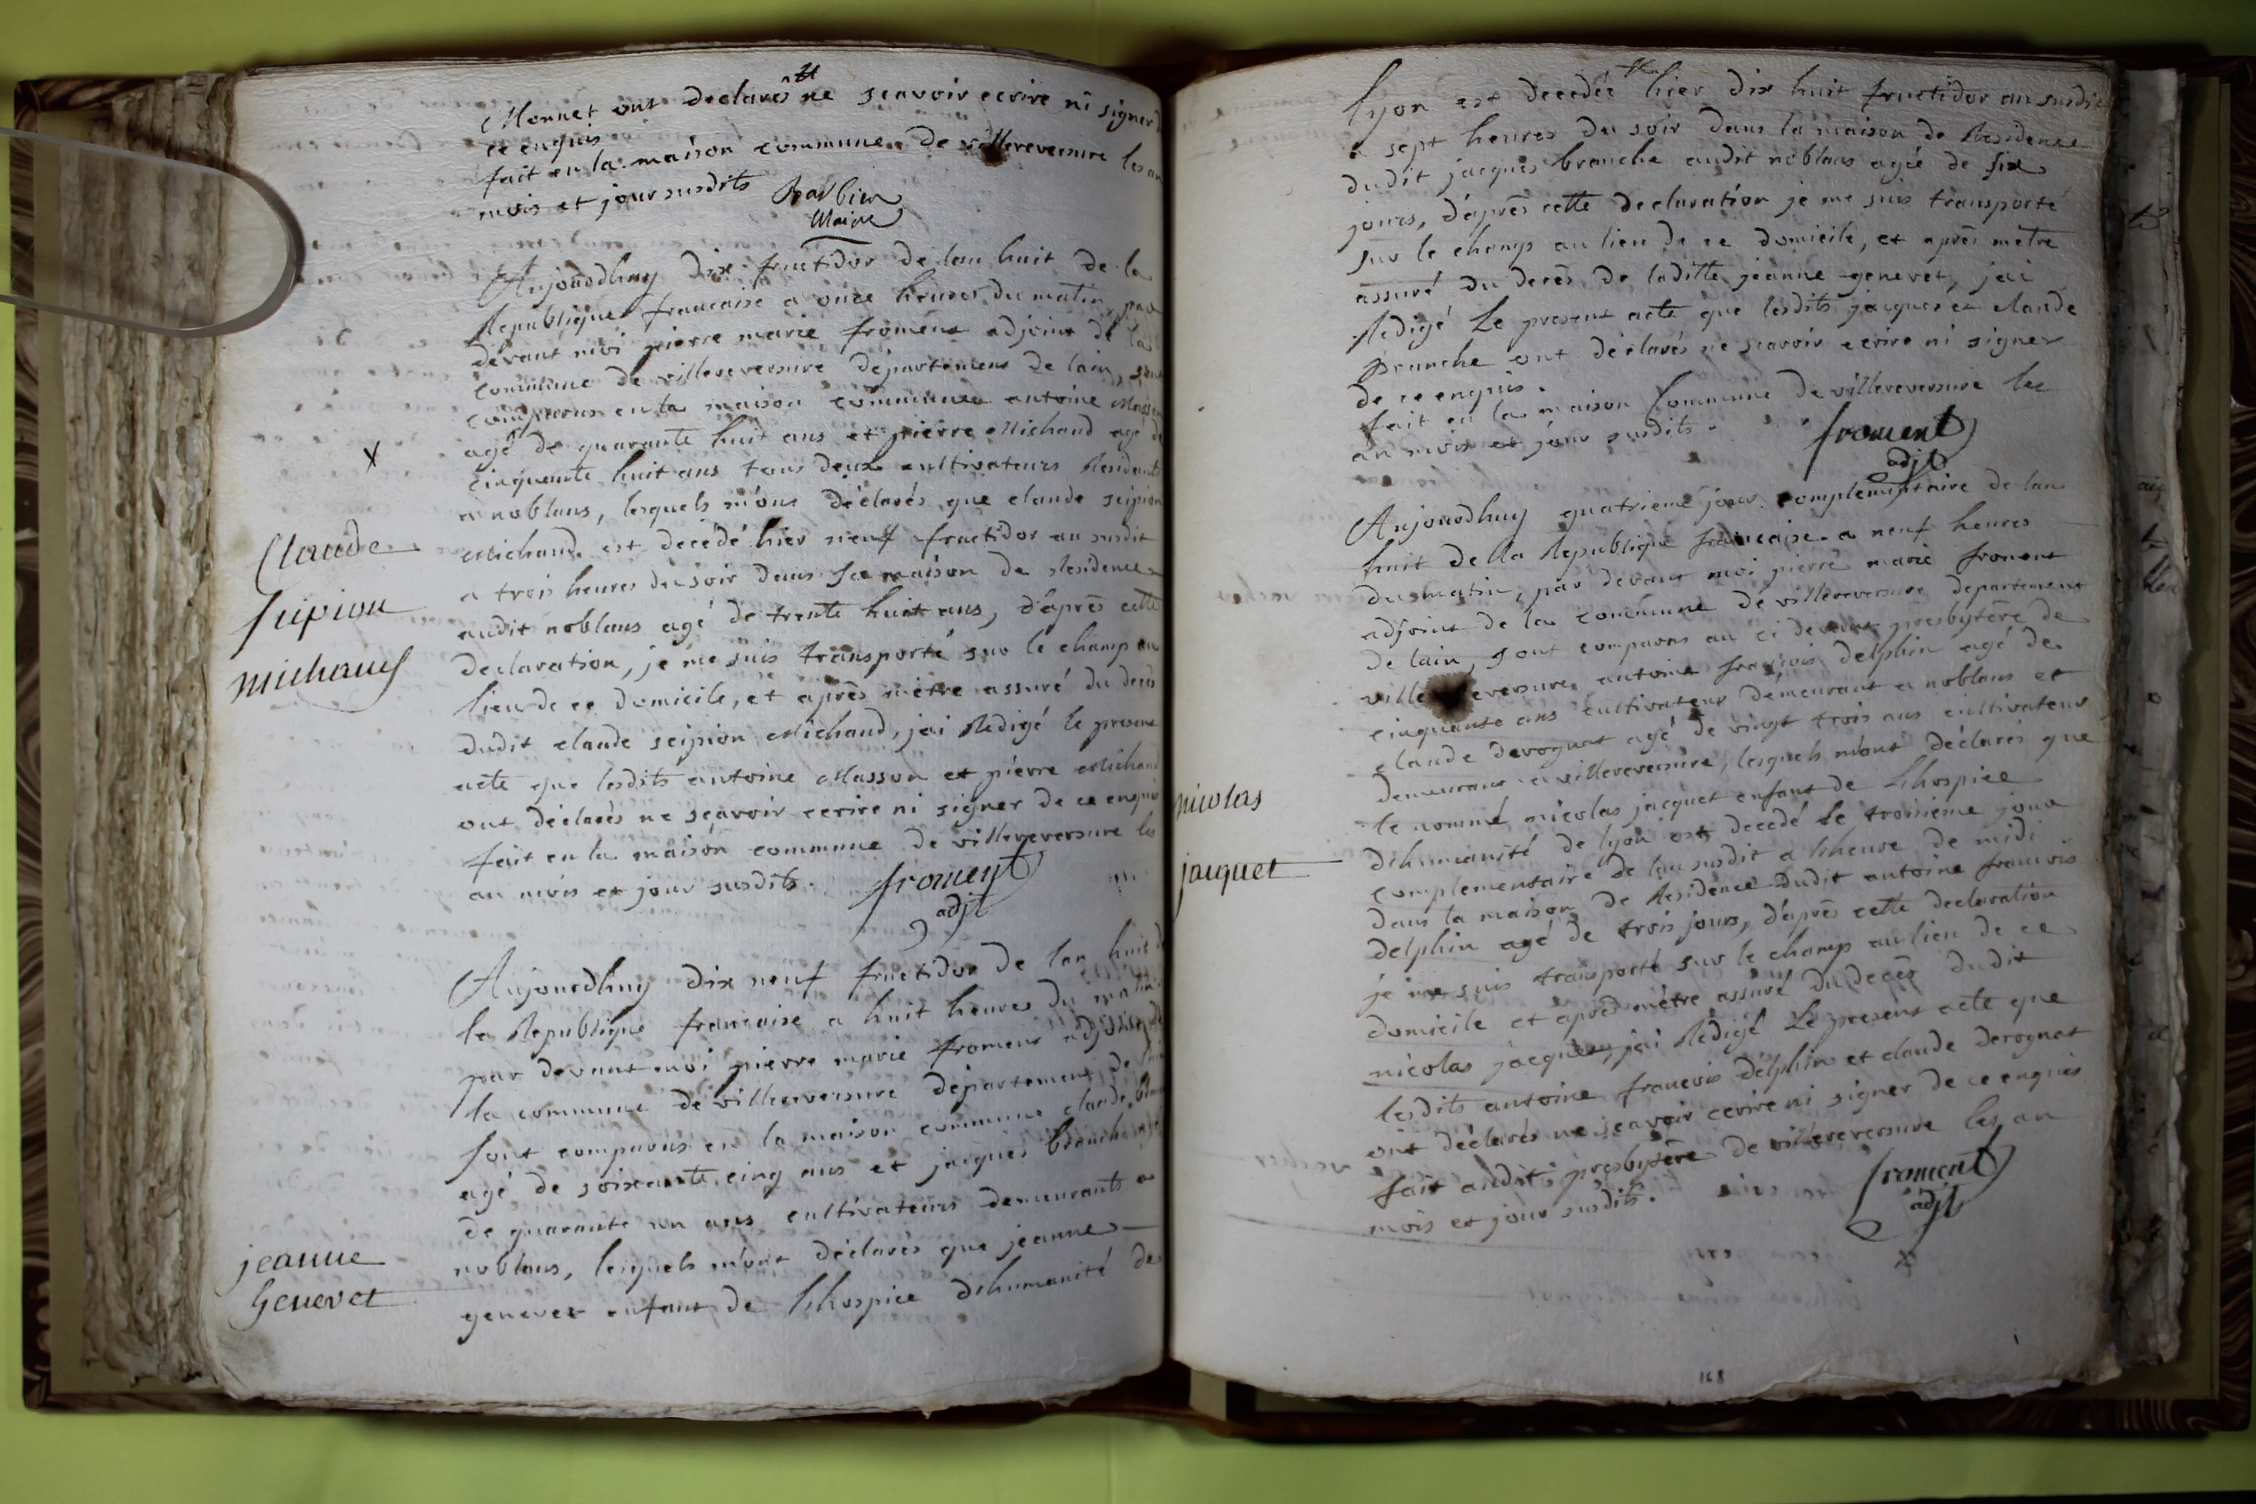 Monnet ont declarés ne scavoir ecrire ni signer
ce enquis
fait en la maison commune de villereversure les an
mois et jour susdits
Barbier
Maire
Aujourdhuy dix fructidor de lan huit de la
Republique francaise a onze heures du matin, par
devant moi pierre marie froment adjoint de la
commune de villereversure departement de lain, sont
comparus en la maison commune antoine Masson
agé de quarante huit ans et pierre Michaud agé de
cinquante huit ans tous deux cultivateurs Residents
a noblans, lesquels mont déclarés que claude scipion
Michaud est decedé hier neuf fructidor an susdit
a trois heures du soir dans sa maison de Residence
audit noblans agé de trente huit ans, d'après cette
declaration, je me suis transporté sur le champ au
lieu de ce domicile, et après mètre assuré du decès
dudit claude scipion Michaud, jai Redigé le present
acte que lesdits antoine Masson et pierre Michaud
ont déclarés ne scavoir ecrire ni signer de ce enquis
fait en la maison commune de villereversure les
an mois et jour susdits.
froment
adjt
Claude
scipion
michaud
Aujourdhuy dix neuf fructidor de lan huit de
la Republique francaise a huit heures du matin
par devant moi pierre marie froment adjoint de
la commune de villereversure département de lain
sont comparus en la maison commune claude
agé de soixante cinq ans et jacques branche agé
de quarante un ans cultivateurs demeurants a
noblans, lesquels mont déclarés que jeanne
genevet enfant de lhospice dhumanité de
jeanne
Genevet
lyon est decedée hier dix huit fructidor an susdit
a sept heures du soir dans la maison de Residence
dudit jacques branche audit noblans agée de six
jours, d'après cette declaration je me suis transporté
sur le champ au lieu de ce domicile, et après mètre
assuré du decès de laditte jeanne genevet, jai
Redigé Le present acte que lesdits jacques et claude
branche ont déclarés ne scavoir ecrire ni signer
de ce enquis.
fait en la maison Commune de villereversure les
an mois et jour susdits.
froment
adjt
Aujourdhuy quatrieme jour complementaire de lan
huit de la Republique francaise a neuf heures
du matin, par devant moi pierre marie froment
adjoint de la commune de villereversure departement
de lain, sont comparus au ci devant presbytère de
villereversure antoine françois delphin agé de
cinquante ans cultivateur demeurant a noblans et
claude derognat agé de vingt trois ans cultivateur
demeurant a villereversure, lesquels mont déclarés que
le nommé nicolas jacquet enfant de Lhospice
dhumanité de lyon est decedé le troisième jour
complementaire de lan susdit a lheure de midi
dans la maison de Residence dudit antoine francois
delphin agé de trois jours, d'après cette declaration
je me suis transporté sur le champ au lieu de ce
domicile et après mètre assuré du decès dudit
nicolas jacquet, jai Rédigé Le present acte que
lesdits antoine francois delphin et claude derognat
ont déclarés ne scavoir ecrire ni signer de ce enquis
fait audit presbytère de villereversure les an
mois et jour susdits.
froment
adjt
nicolas
jacquet
168